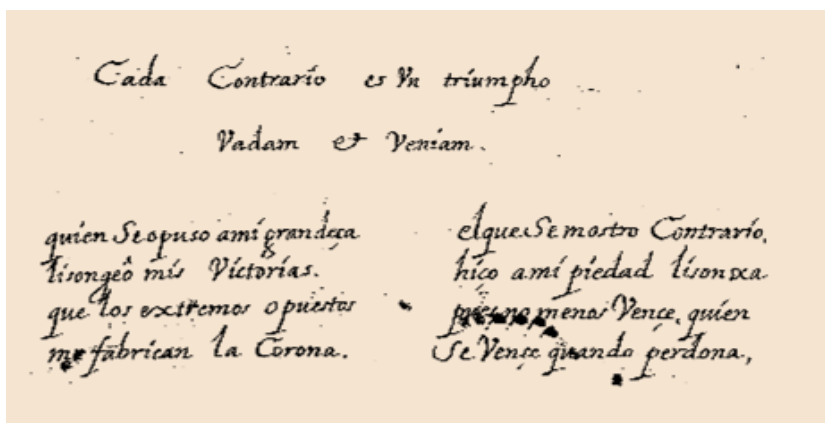 Cada Contrario es Vn triumpho
Vadam et Veniam.
quien Se opuso a mi grandeça
lisongeô mis Victorias.
que los extremos opuestos
me fabrican la Corona.
el que Se mostro Contrario,
hiço a mi piedad lisonxa
pues no menos Vençe, quien
Se Vençe quando perdona,